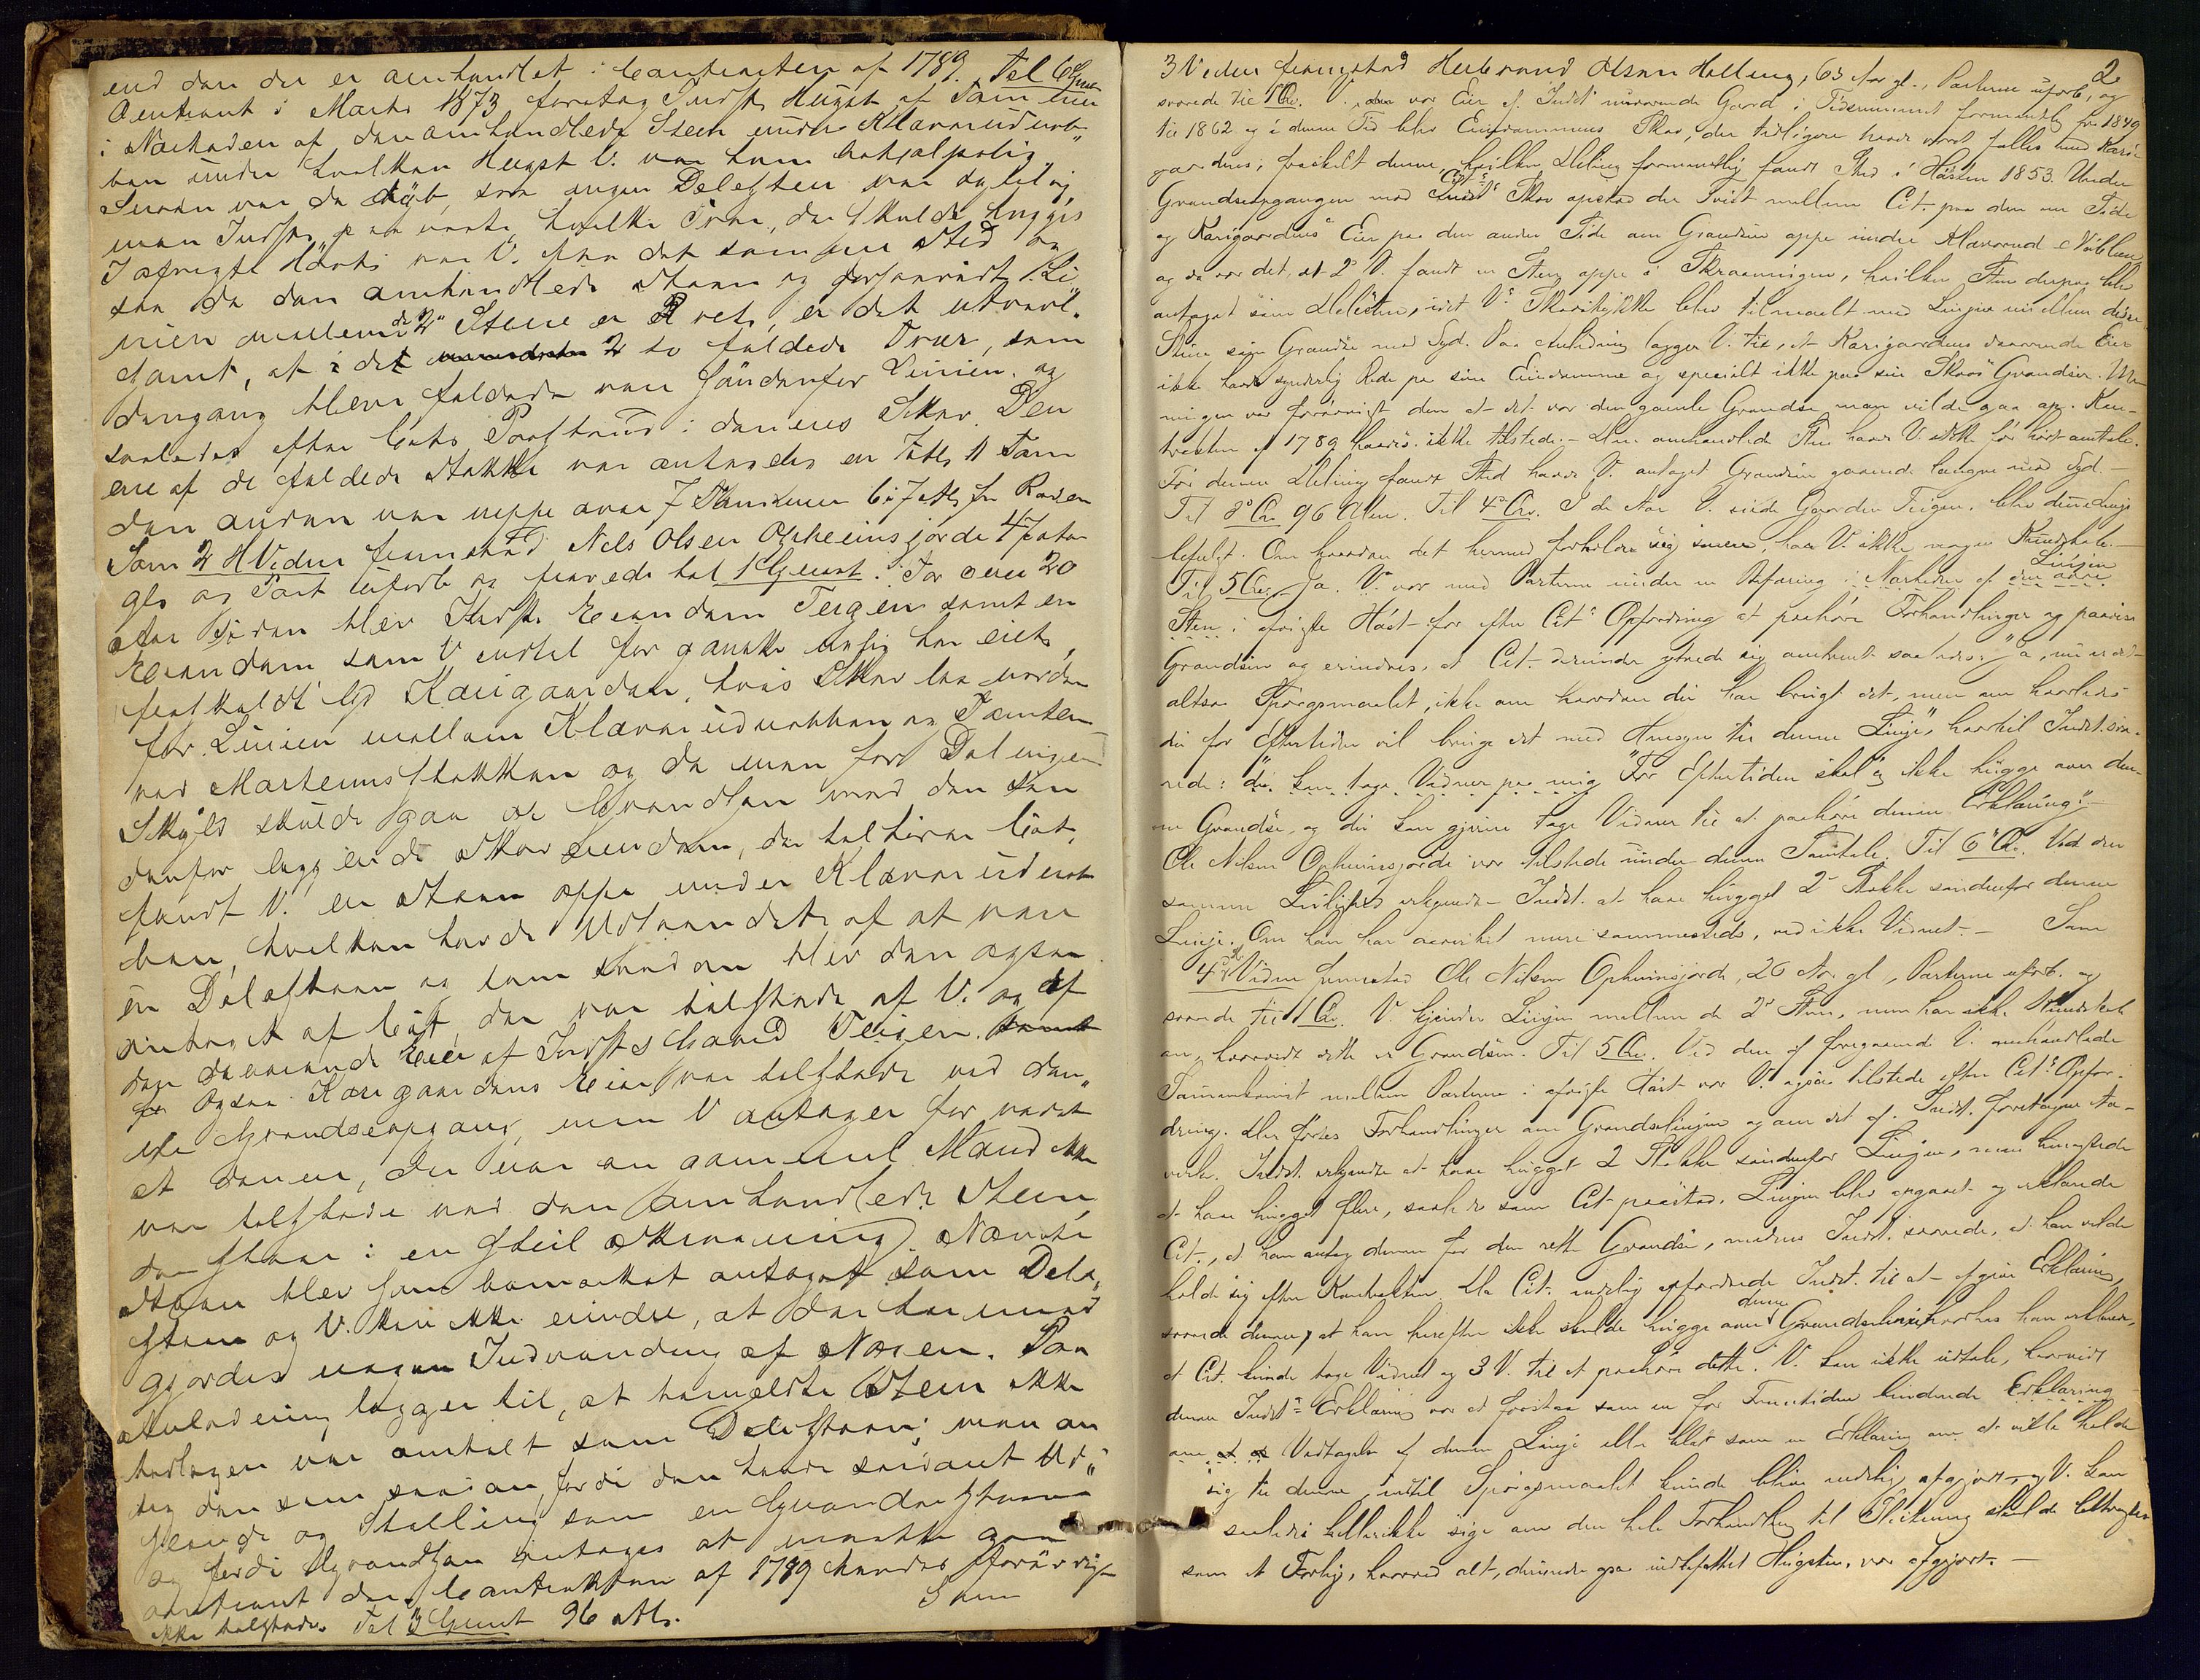 end den der er omhandlet i Contracten af 1789. Til 6 Qv.
Omtrent i Marts 1873 foretog Indst. Hugst af Tøm mer
i Nærheden af den omhandlede Steen under Klavarudnob-
ben under hvilken Hugst V. var ham behjælpelig.
Sneen var da dyb, saa ingen Delesten var synlig,
men Indst. paaviste hvilke Træer, der skulde hugges
I afvigte Høst var V. paa det samme Sted og
saa da den omhandlede Steen og forsaavidt Li-
nien mellem de 2 Stene er Ret, er det utvivl-
somt, at i det 2 to fældede Træer, som
dengang bleve fældede var søndenfor Linien og
saaledes efter Cits Paastand i dennes Skov. Den
ene af de fældede Stokke var antagelig en Fods 11 Tom
den anden var neppe over 7 Tommer 6 à 7 Al. fra Roden
Som 2det Vidne fremstod Nils Olsen Opheimsjorde 47 Aar
gl. og Part uforb. og svarede til 1 Qvest. For over 20
Aar siden blev Indst. Eiendom Teigen samt en
Eiendom som V. indtil for ganske nylig har eiet,
fraskildt fra Karigaarden, hvis Skov laa norden
for Linien mellem Klavarudnobben og Tomten
ved Marteinsstokken og da man for Delingens
Skyld skulde gaa op Grændsen med den søn
denfor liggende Skoveiendom, der tilhører Cit.,
fandt V. en Steen oppe under Klavarudnob
ben, hvilken havde Udseendet af at være
en Delesteen og som saadan blev den ogsaa
antaget af Cit., der var tilstede af V. og af
den daværende Eier af Indst.s Gaard Teigen.
Ogsaa Karigaardens Eier var tilstede ved den-
ne Grændseopgang, men V. antager for vist
at denne, der var en gammel Mand ikke
var tilstede ved den omhandlede Steen,
der staar i en steil Skraaning. Nævnte
Steen blev som bemærket antaget som Dele-
steen og V. kan ikke erindre, at der herimod
gjordes nogen Indvending af Nogen. Paa
Anledning lægger til, at bemeldte Steen ikke
tidligere var omtalt som Delesteen; man an
tog den som saadan, fordi den havde saadant Ud-
seende og Stilling som en Grændsesteen
og fordi Grændsen antages at maatte gaa
omtrent der. Contracten af 1789 havdes forøvrigt
ikke tilstede. Til 3 Qvest. 96 Al. Som
2
3 Vidne fremstod Herbrand Olsen Halling, 63 Aar gl., Parterne uforb., og
svarede til 1 Qv. V. der var Eier af Indst.s nuværende Gaard i Tidsrummet formentlig fra 1849
til 1862 og i denne Tid blev Eiendommens Skov, der tidligere havde været fælles med Kari-
gardens, fraskilt denne, hvilken Deling formentlig fandt Sted i Høsten 1853. Under
Grændseopgangen med Cit.s Skov opstod der Tvist mellem Cit. paa den ene Side
og Karigaardens Eier paa den anden Side om Grændsen oppe under Klavarud Nobben
og da var det, at 2d V. fandt en Sten oppe i Skraaningen, hvilken Sten derpaa blev
antaget som Delesten, idet V.s Skovstykke blev tilmaalt med Linjen mellem disse
Stene som Grændse mod Syd. Paa Anledning lægger V. til, at Karigaardens daværende Eier
ikke havde synderlig Rede paa sin Eiendomme og specielt ikke paa sin Skovs Grændser. Me-
ningen var forøvrigt den at det var den gamle Grændse man vilde gaa op. Kon-
trakten af 1789 havdes ikke tilstede. – Den omhandlede Sten havde V. ikke før hørt omtale.
Før denne Deling fandt Sted havde V. antaget Grændsen gaaende længere mod Syd. –
Til 3d Qv. 96 Alen. Til 4d Qv. I de Aar V. eiede Gaarden Teigen, blev denne Linje
befulgt. Om hvordan det hermed forholder sig senere, har V. ikke nogen Kundskab. –
Til 5 Qv. Ja. V. var med Parterne under en Befaring i Nærheden af Linjen den øvre
Sten i afvigte Høst for efter Cit.s Opfordring at paahøre Forhandlinger og paavise
Grændsen og erindres, at Cit. derunder ytrede sig omtrent saaledes: "Ja, nu er det
altsaa Spørgsmaalet, ikke om hvordan du har brugt det, men om hvorledes
du for Eftertiden vil bruge det med Hensyn til denne Linje", hvortil Indst. sva-
rede: "du kan tage Vidner paa mig. For Eftertiden skal jeg ikke hugge over den-
ne Grændse, og du kan gjerne tage Vidner til at paahøre denne Erklæring". –
Ole Nilsen Opheimsjorde var tilstede under denne Samtale. Til 6 Qv. Ved den
samme Leilighed erkjendte Indst. at have hugget 2 Stokke søndenfor denne
Linje. Om han har avvirket mere sammesteds, ved ikke Vidnet. – Som
4de Vidne fremstod Ole Nilsen Opheimsjorde, 26 Aar gl., Parterne uforb. og
svarede til 1 Qv. V. kjender Linjen mellem de 2de Stene, men har ikke Kundskab
om, hvorvidt dette er Grændsen. Til 5 Qv. Ved den af foregaaende V. omhandlede
Sammenkomst mellem Parterne i afvigte Høst var V. ogsaa tilstede efter Cit.s Opfor-
dring. Der førtes Forhandlinger om Grændselinjen og om det af Indst. foretagne Av-
virke. Indst. erkjendte at have hugget 2 Stokke søndenfor Linjen, men benegtede
at have hugget flere, saaledes som Cit. paastod. Linjen blev opgaaet og erklærede
Cit., at han antog denne for den rette Grændse, medens Indst. svarede, at han vilde
holde sig efter Kontrakten. Da Cit. endelig opfordrede Indst. til at afgive Erklæring,
svarede denne, at han herefter ikke skulde hugge over denne Grændselinje, hvorhos han erklærede,
at Cit. kunde tage Vidnet og 3 V. til at paahøre dette. V. kan ikke udtale, hvorvidt
denne Indst.s Erklæring var at forstaa som en for Fremtiden bindende Erklæring
om Vedtagelse af denne Linje eller blot som en Erklæring om at ville holde
sig til denne, indtil Spørgsmaalet kunde blive endelig afgjort, og V. kan
saaledes heller ikke sige om den hele Forhandling til Slutning skulde betragtes
som et Forlig, hvorved alt, derunder ogsaa indbefattet Hugsten, var afgjort. –